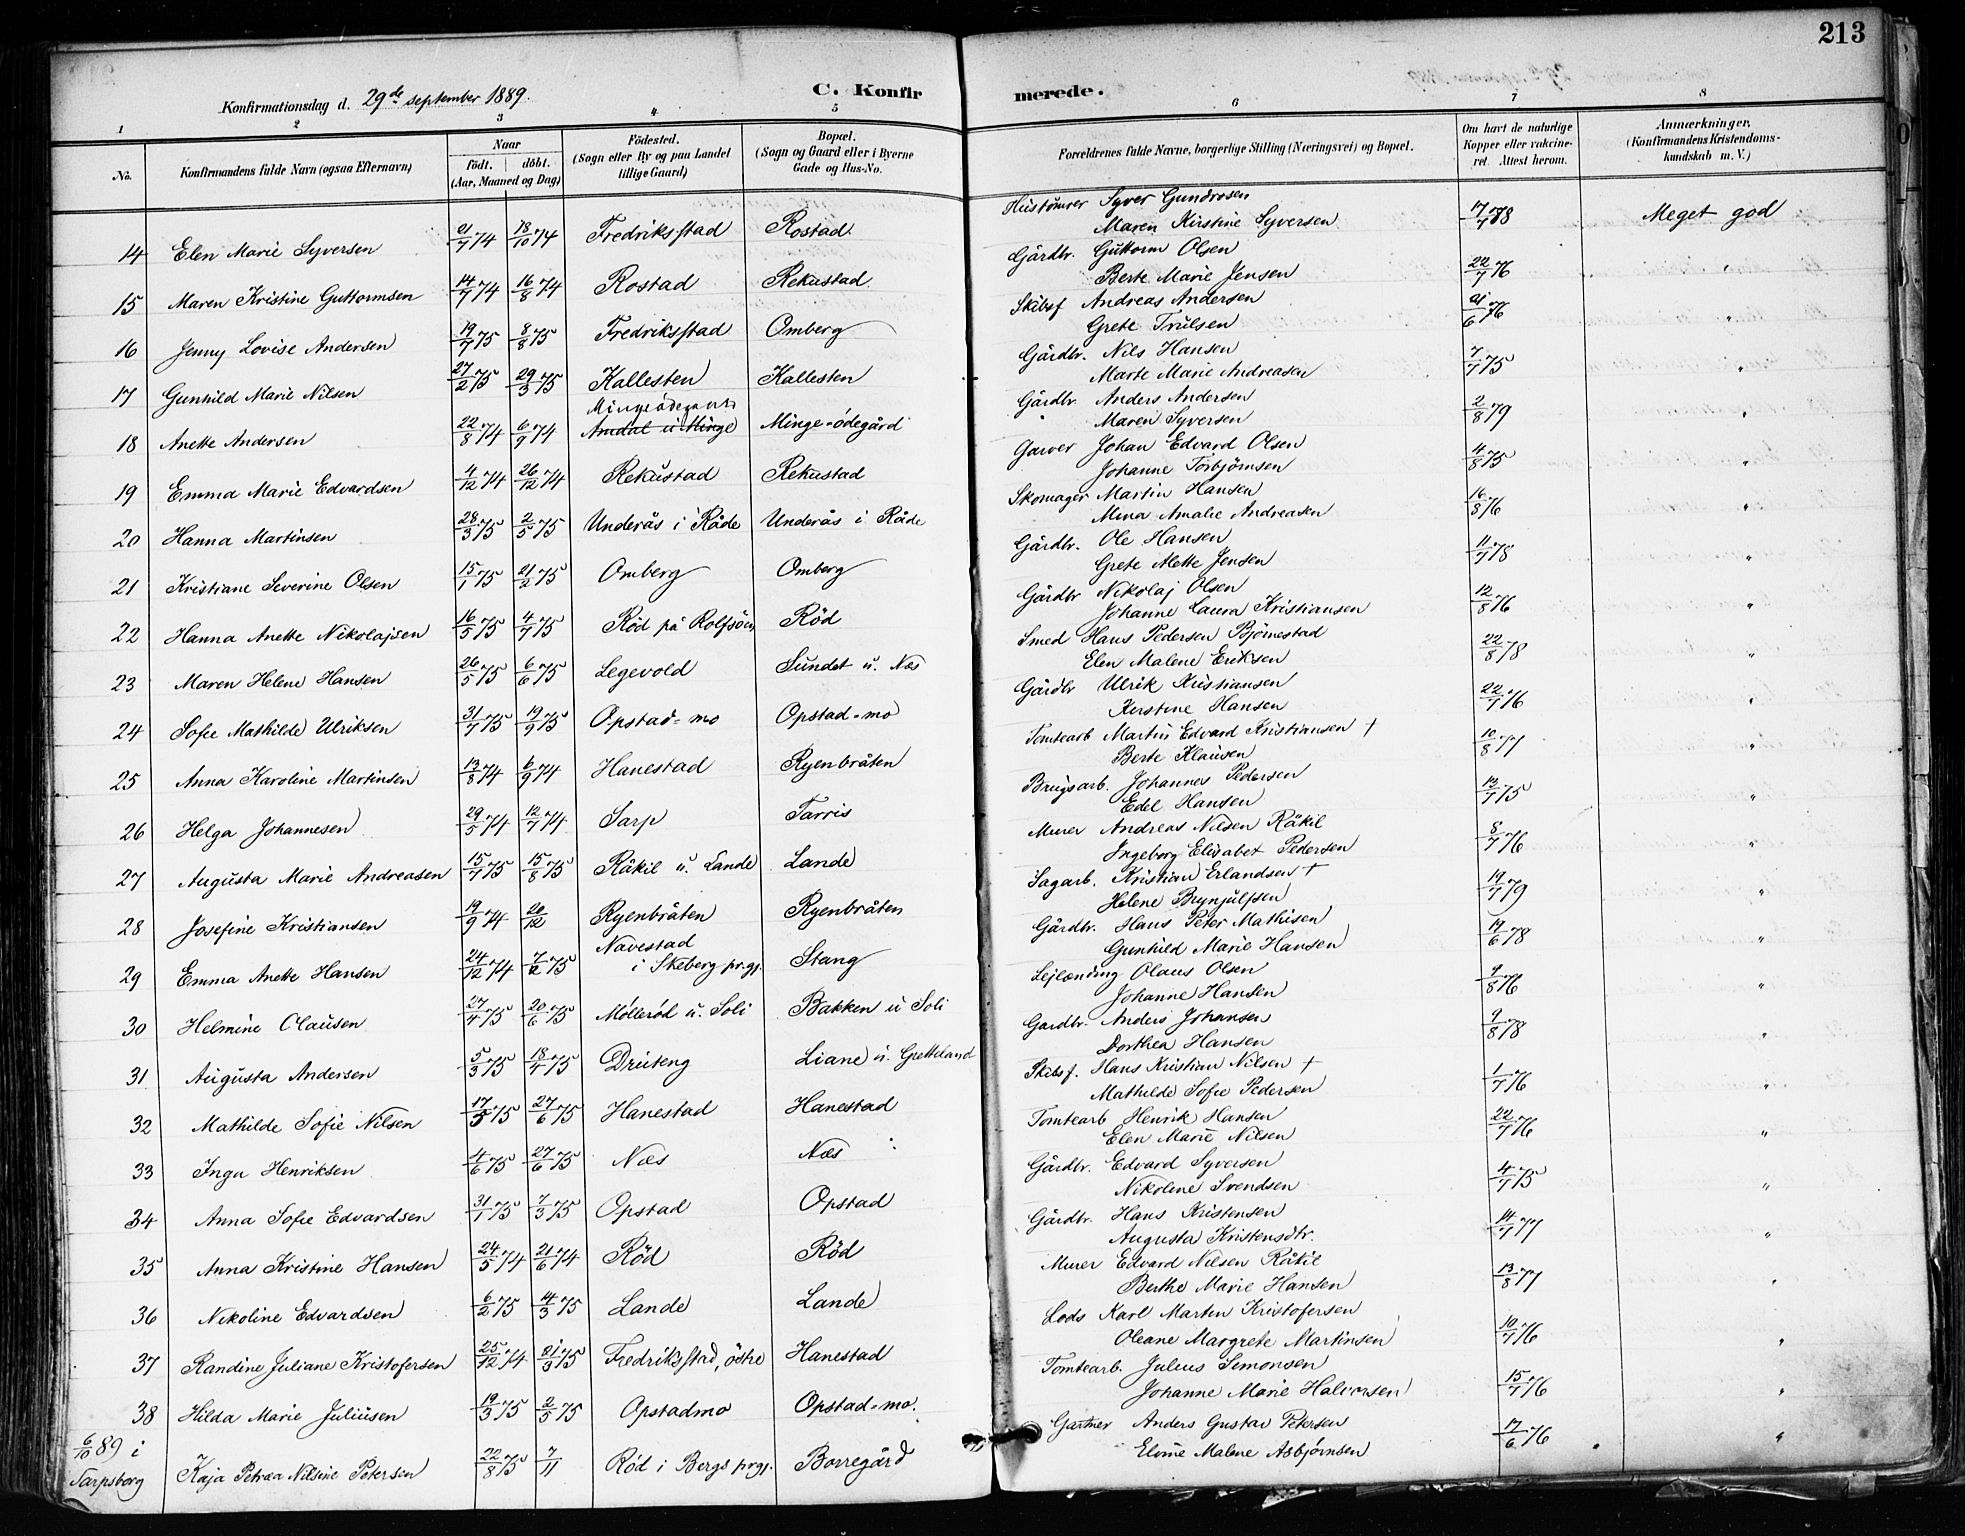 213
Konfirmationsdag d. 29de september 1889. C. Konfirmerede.
1 2 3 4 5 6 7 8
No. Konfirmandens fulde Navn (ogsaa Efternavn) Naar født. døbt. (Aar, Maaned og Dag) Fødested. (Sogn eller By og paa Landet tillige Gaard) Bopæl. (Sogn og Gaard eller i Byerne Gade og Hus-No. Forældrenes fulde Navne, borgerlige Stilling (Næringsvei) og Bopæl. Om havt de naturlige Kopper eller vakcineret. Attest herom. Anmærkninger. (Konfirmandens Kristendomskundskab m. V.)
14 Elen Marie Syversen 21/7 74 18/10 74 Fredriksstad Rostad. Hustømrer Syver Gundrosen 17/7 78 Meget god
Maren Kirstine Syversen
15 Maren Kristine Guttormsen 14/7 74 16/8 74 Rostad Rekustad Gårdbr. Guttorm Olsen 22/7 76 "
Berte Marie Jensen
16 Jenny Lovise Andersen 19/7 75 8/8 75 Fredriksstad Omberg Skibsf Andreas Andersen 21/6 76 "
Grete Trulsen
17 Gunhild Marie Nilsen 27/2 75 29/3 75 Kallesten Kallesten Gårdbr. Nils Hansen 7/7 75 "
Marte Marie Andreasen
18 Anette Andersen 22/8 74 6/9 74 Mingeødegård Amdal u. Minge Minge-ödegård Gårdbr. Anders Andersen 2/8 79 "
Maren Syversen
19 Emma Marie Edvardsen 4/12 74 26/12 74 Rekustad Rekustad Garver Johan Edvard Olsen 4/8 75 "
Johanne Torbjørnsen
20 Hanna Martinsen 28/3 75 2/5 75 Underås i Råde Underås i Råde Skomager Martin Hansen 16/8 76 "
Mina Amalie Andreasen
21 Kristiane Severine Olsen 15/1 75 21/2 75 Omberg Omberg Gårdbr. Ole Hansen 11/7 78 "
Grete Mette Jensen
22 Hanna Anette Nikolajsen 16/5 75 4/7 75 Röd på Rolfsöen Röd Gårdbr Nikolaj Olsen 12/8 76 "
Johanne Laura Kristiansen
23 Maren Helene Hansen 26/5 75 6/6 75 Legevold Sundet u. Næs Smed Hans Pedersen Björnestad 22/8 78 "
Elen Malene Eriksen
24 Sofie Mathilde Ulriksen 31/7 75 19/9 75 Opstad-mo Opstad-mo Gårdbr Ulrik Kristiansen 22/7 76 "
Kirstine Hansen
25 Anna Karoline Martinsen 13/8 74 6/9 74 Hanestad Ryenbråten Tomtearb Martin Edvard Kristiansen † 10/8 77 "
Berte Klausen
26 Helga Johannesen 29/5 74 12/7 74 Sarp Tarris Brugsarb. Johannes Pedersen 12/7 75 "
Edel Hansen
27 Augusta Marie Andreasen 15/7 75 15/8 75 Råkil u. Lande Lande Murer Andreas Nilsen Råkil 8/7 76 "
Ingeborg Elisabet Pedersen
28 Josefine Kristiansen 19/9 74 20/12 Ryenbråten Ryenbråten Sagarb. Kristian Erlandsen † 19/7 79 "
Helene Brynjulfsen
29 Emma Anette Hansen 24/12 74 7/2 75 Navestad i Skeberg prgj. Stang Gårdbr. Hans Peter Mathisen 14/6 78 "
Gunhild Marie Hansen
30 Helmine Olausen 27/4 75 20/6 75 Möllerød u. Soli Bakken u Soli Lejlænding Olaus Olsen 9/8 76 "
Johanne Hansen
31 Augusta Andersen 5/3 75 18/4 75 Drüteng Liane u. Gretteland Gardbr. Anders Johansen 9/8 78 "
Dorthea Hansen
32 Mathilde Sofie Nilsen 17/5 75 27/6 75 Hanestad Hanestad Skibsf. Hans Kristian Nilsen † 1/7 76 "
Mathilde Sofie Pedersen
33 Inga Henriksen 4/6 75 27/6 75 Næs Næs Tomtearb Henrik Hansen 22/7 76 "
Elen Marie Nilsen
34 Anna Sofie Edvardsen 31/1 75 7/3 75 Opstad Opstad Gårdbr. Edvard Syversen 4/7 75 "
Nikoline Svendsen
35 Anna Kristine Hansen 24/5 74 21/6 74 Röd Röd Gårdbr. Hans Kristensen 14/7 77 "
Augusta Kristensdtr.
36 Nikoline Edvardsen 6/2 75 4/3 75 Lande Lande Murer Edvard Nilsen Råkil 13/8 77 "
Berthe Marie Hansen
37 Randine Juliane Kristofersen 25/12 74 21/3 75 Fredriksstad, östre Hanestad Lods Karl Martin Kristofersen 10/7 76 "
Oleane Margrete Martinsen
38 Hilda Marie Juliusen 19/3 75 2/5 75 Opstadmo Opstad-mo. Tomtearb. Julius Simonsen 15/7 76 "
Johanne Marie Halvorsen
6/10 89 i Sarpsborg Kaja Petræa Nilsine Petersen 22/8 75 7/11 Rød i Bergs prgj. Borregård Gartner Anders Gustav Petersen 17/6 76 "
Elvine Malene Asbjørnsen